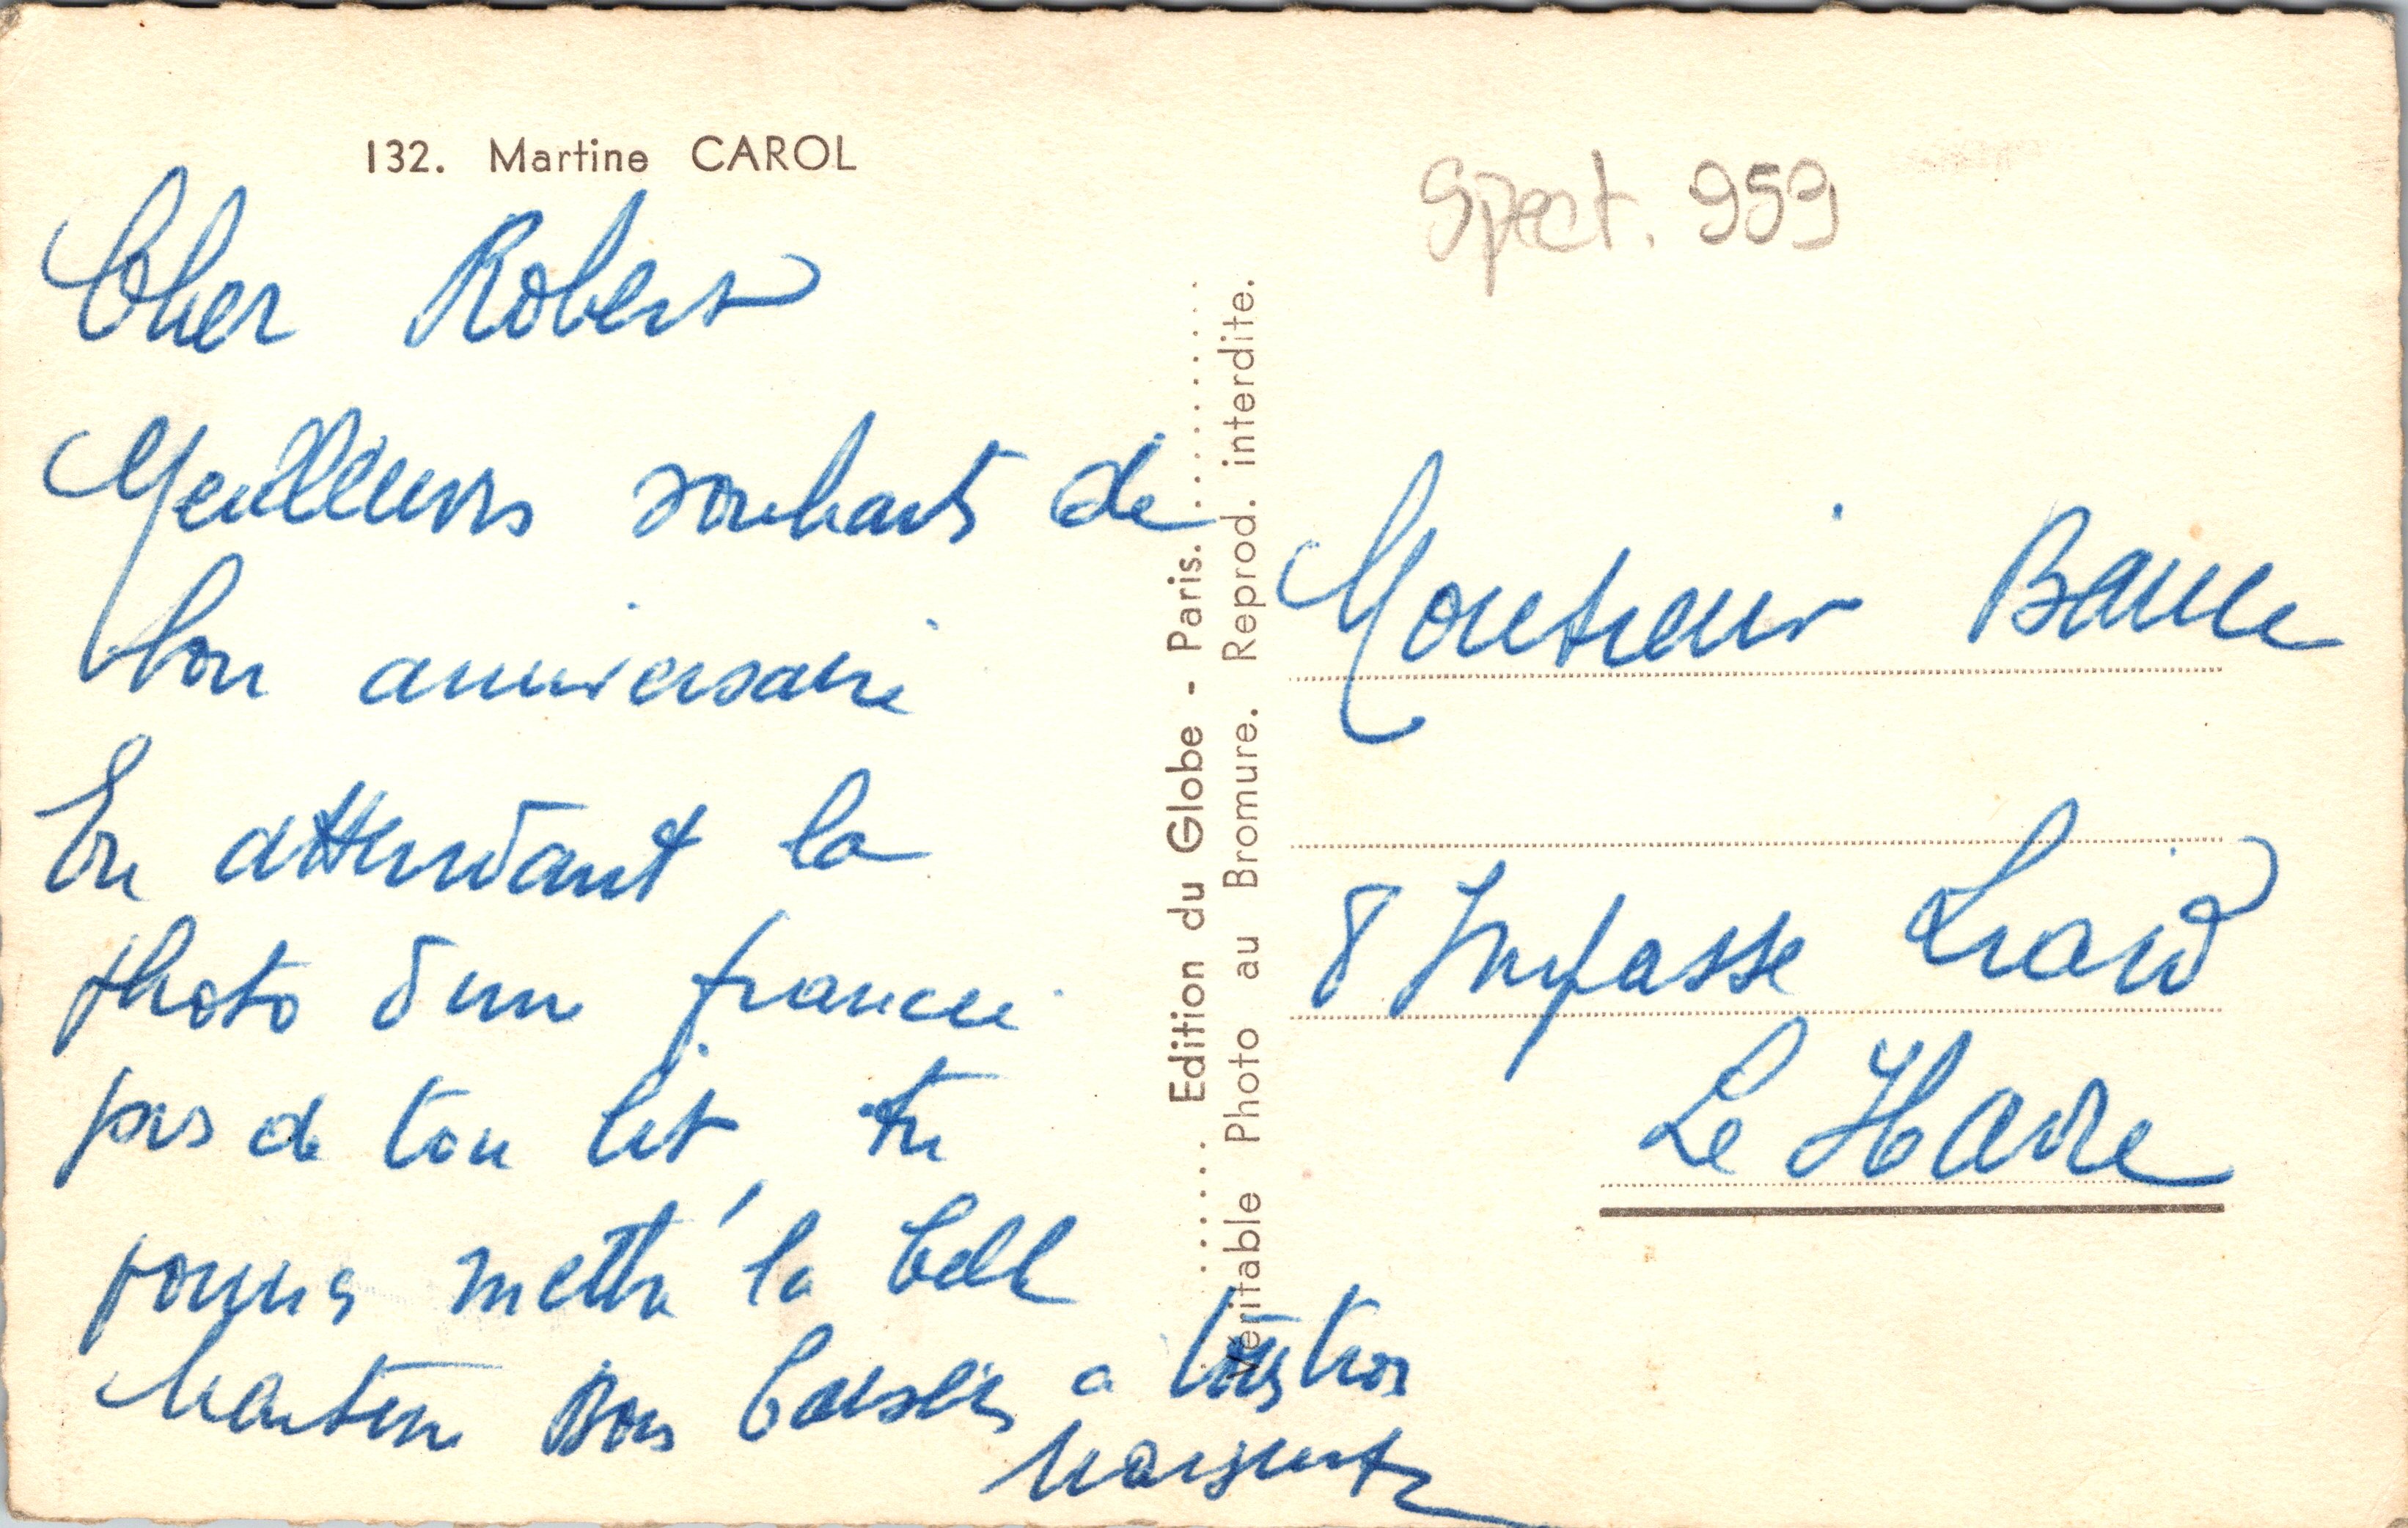 132. Martine CAROL
Cher Robert
Meilleurs souhaits de
bon anniversaire
En attendant la
photo d'une fiancée
pres de ton lit, tu
pourras mettre la belle
Martine Bons baisers a tous trois
Marguerite
Edition du Globe - Paris.
Véritable Photo au Bromure. Reprod. interdite.
Spect. 959
Monsieur
8 Impasse
Le Havre